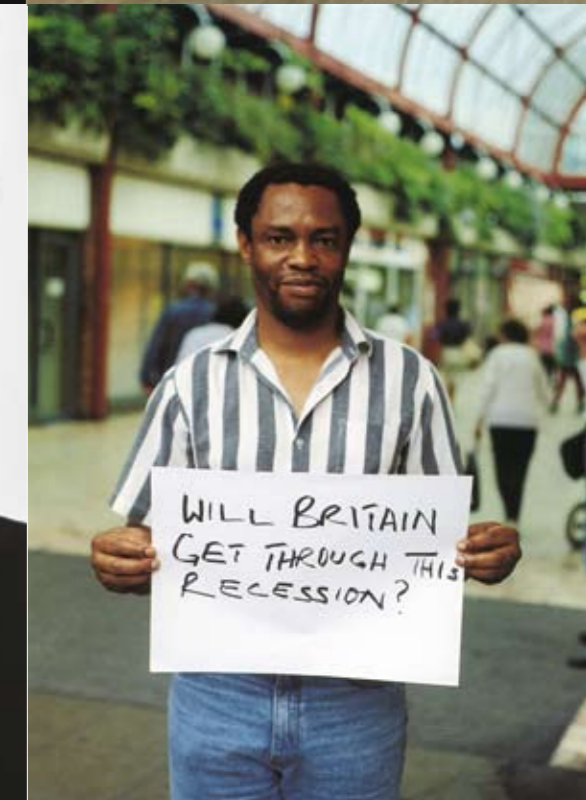 WILL BRITAIN
GET THROUGH THIS
RECESSION?